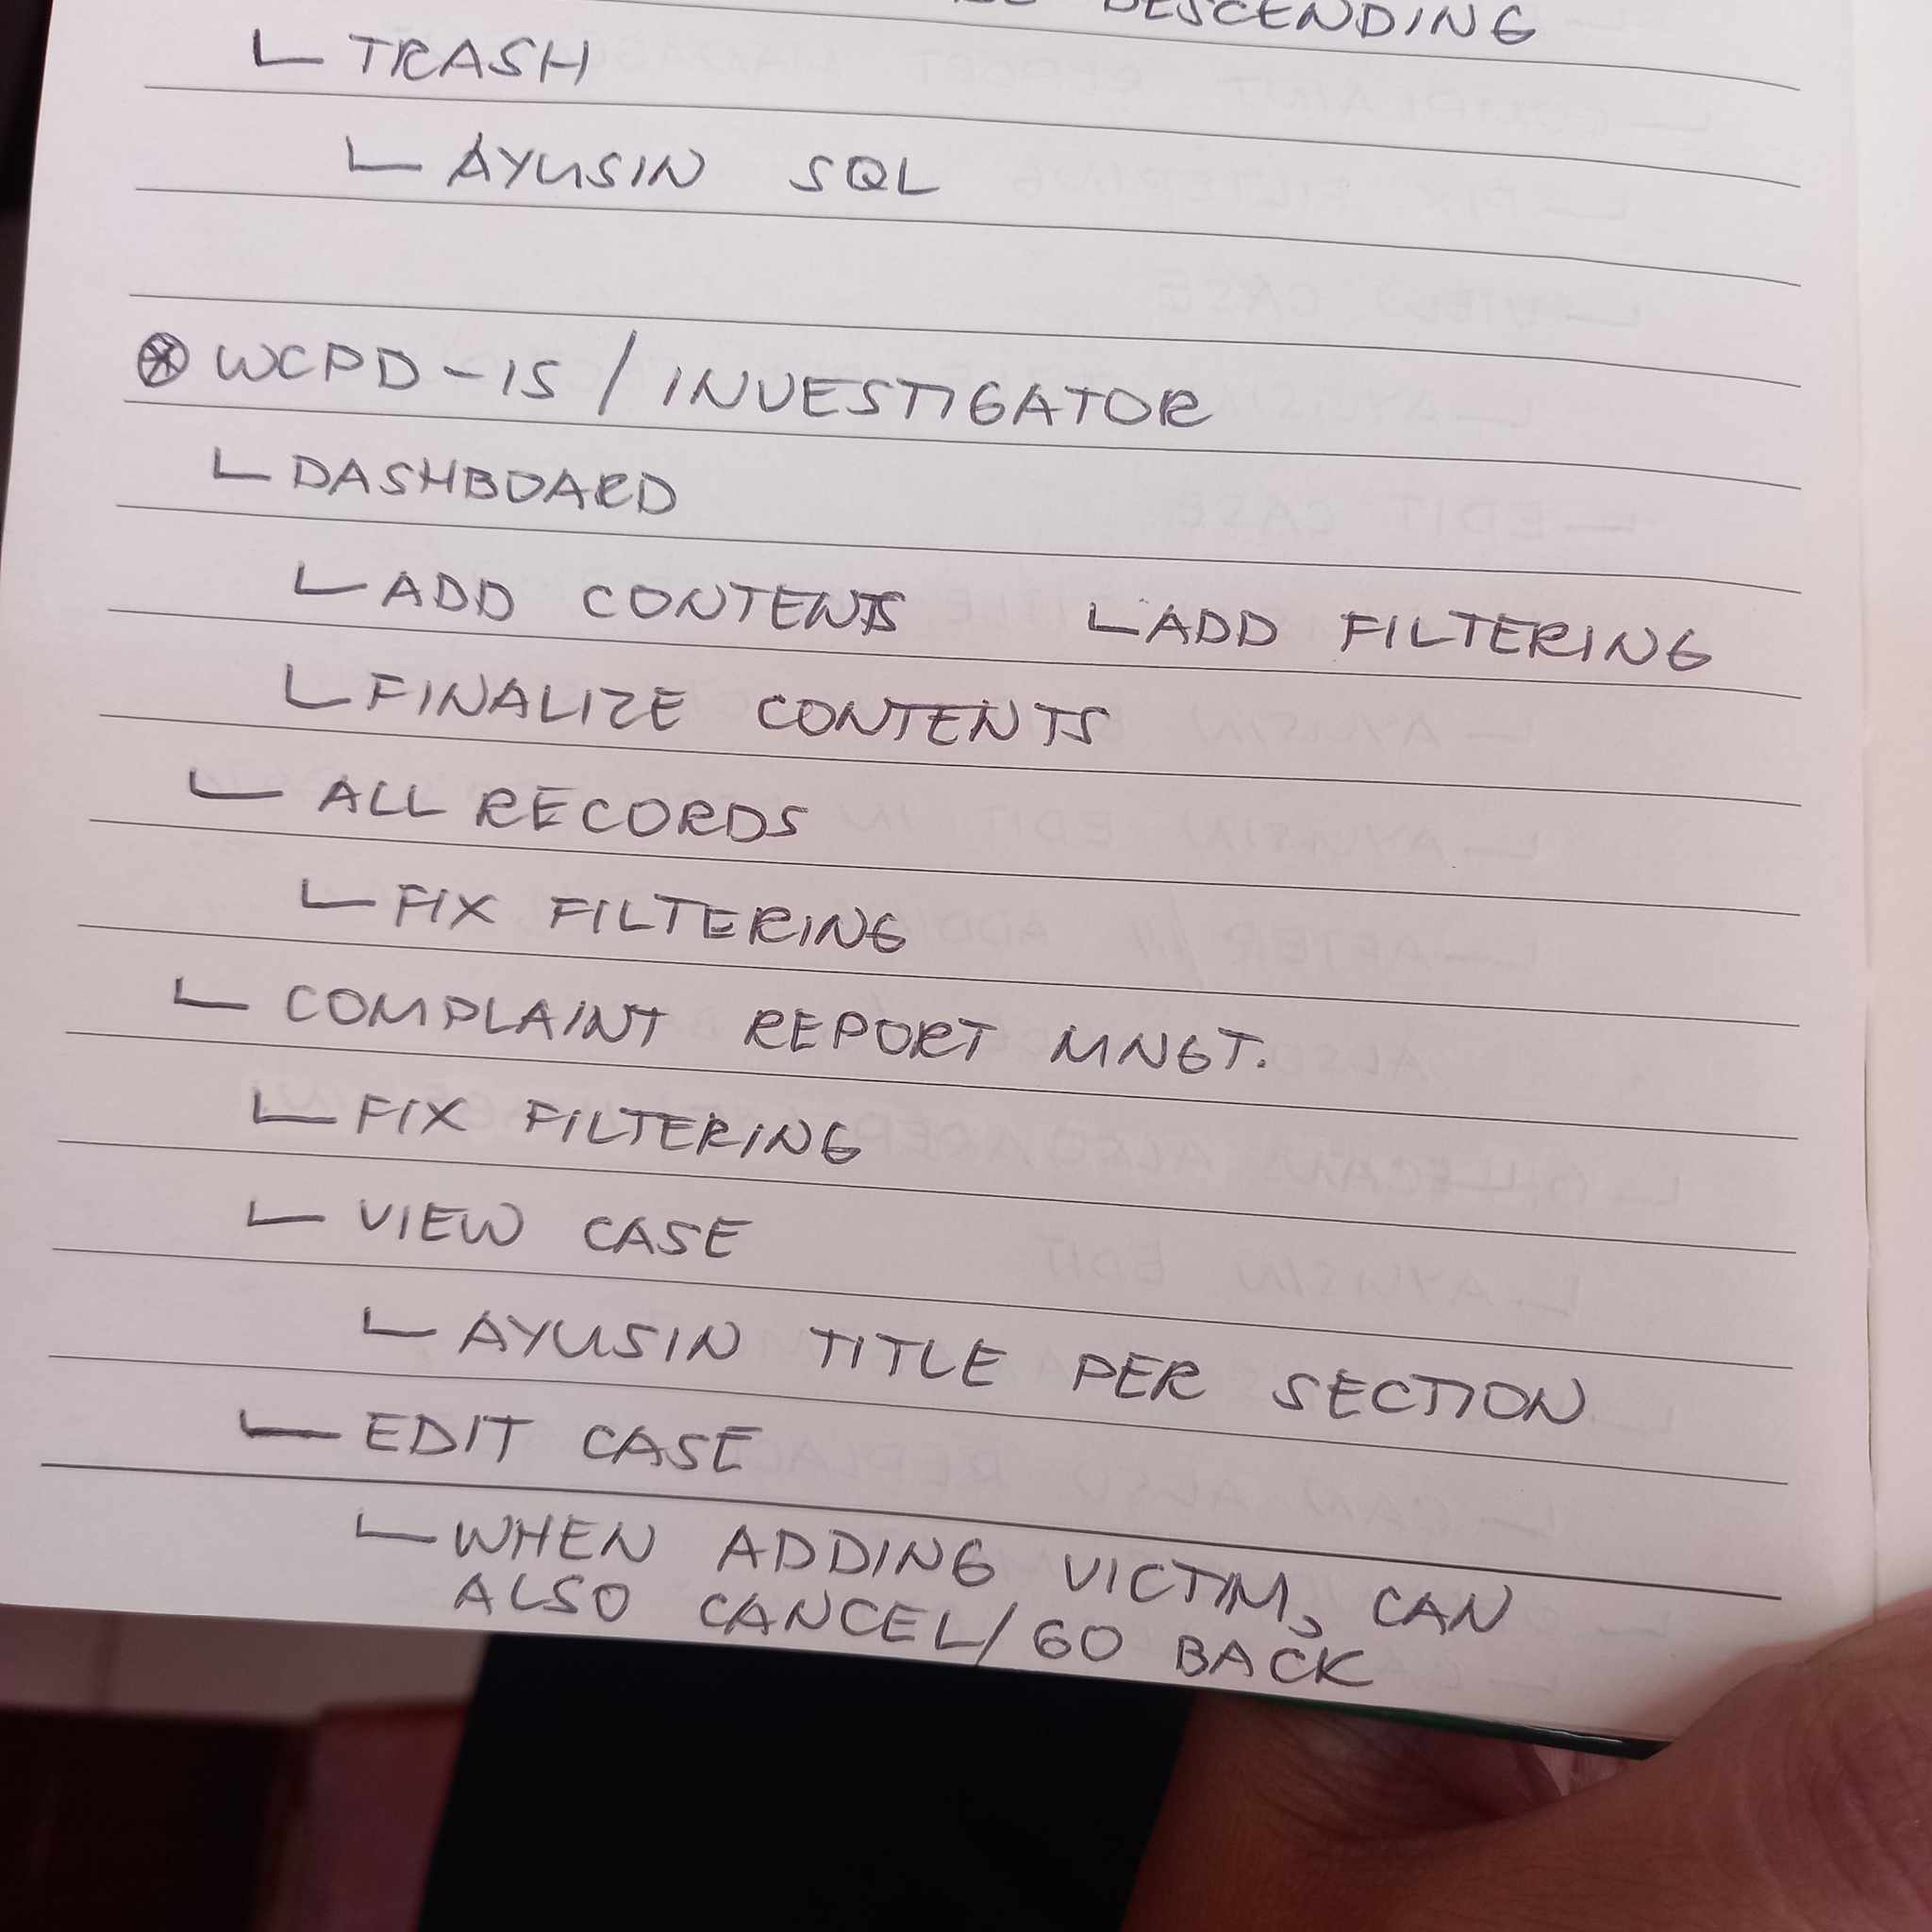 DESCENDING
TRASH
AYUSIN SQL
WCPD-IS / INVESTIGATOR
DASHBOARD
ADD CONTENTS ADD FILTERING
FINALIZE CONTENTS
ALL RECORDS
FIX FILTERING
COMPLAINT REPORT MNGT.
FIX FILTERING
VIEW CASE
AYUSIN TITLE PER SECTION
EDIT CASE
WHEN ADDING VICTIM, CAN
ALSO CANCEL/GO BACK